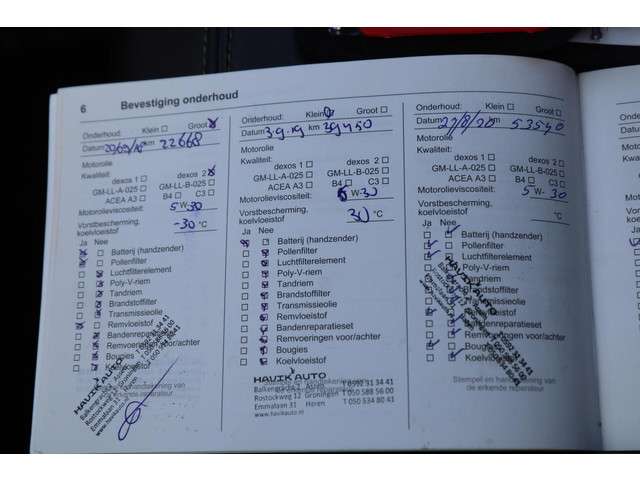 6 Bevestiging onderhoud
Onderhoud: Klein Groot
Datum km 22668
Motorolie
Kwaliteit:
dexos 1 dexos 2
GM-LL-A-025 GM-LL-B-025
ACEA A3 B4 C3
Motorolieviscositeit:
5 W-30
Vorstbescherming,
koelvloeistof
-30 °C
Ja Nee
Batterij (handzender)
Pollenfilter
Luchtfilterelement
Poly-V-riem
Tandriem
Brandstoffilter
Transmissieolie
Remvloeistof
Bandenreparatieset
Remvoeringen voor/achter
Bougies
Koelvloeistof
HAVIK AUTO
Balkengracht
Rostockweg 12 Groningen
Emmalaan 31
www.havikauto.nl
Onderhoud: Klein Groot
Datum 3.9.19 km 39450
Motorolie
Kwaliteit:
dexos 1 dexos 2
GM-LL-A-025 GM-LL-B-025
ACEA A3 B4 C3
Motorolieviscositeit:
5 W-30
Vorstbescherming,
koelvloeistof
30 °C
Ja Nee
Batterij (handzender)
Pollenfilter
Luchtfilterelement
Poly-V-riem
Tandriem
Brandstoffilter
Transmissieolie
Remvloeistof
Bandenreparatieset
Remvoeringen voor/achter
Bougies
Koelvloeistof
HAVIK AUTO
Balkengracht Assen T 0592 31 34 41
Rostockweg 12 Groningen T 050 589 56 00
Emmalaan 31 Haren T 050 534 80 41
www.havikauto.nl
Onderhoud: Klein Groot
Datum 27/8/20 km 53540
Motorolie
Kwaliteit:
dexos 1 dexos 2
GM-LL-A-025 GM-LL-B-025
ACEA A3 B4 C3
Motorolieviscositeit:
5 W-30
Vorstbescherming,
koelvloeistof
°C
Ja Nee
Batterij (handzender)
Pollenfilter
Luchtfilterelement
Poly-V-riem
Tandriem
Brandstoffilter
Transmissieolie
Remvloeistof
Bandenreparatieset
Remvoeringen voor/achter
Bougies
Koelvloeistof
HAVIK AUTO
Stempel en handtekening van
de erkende reparateur